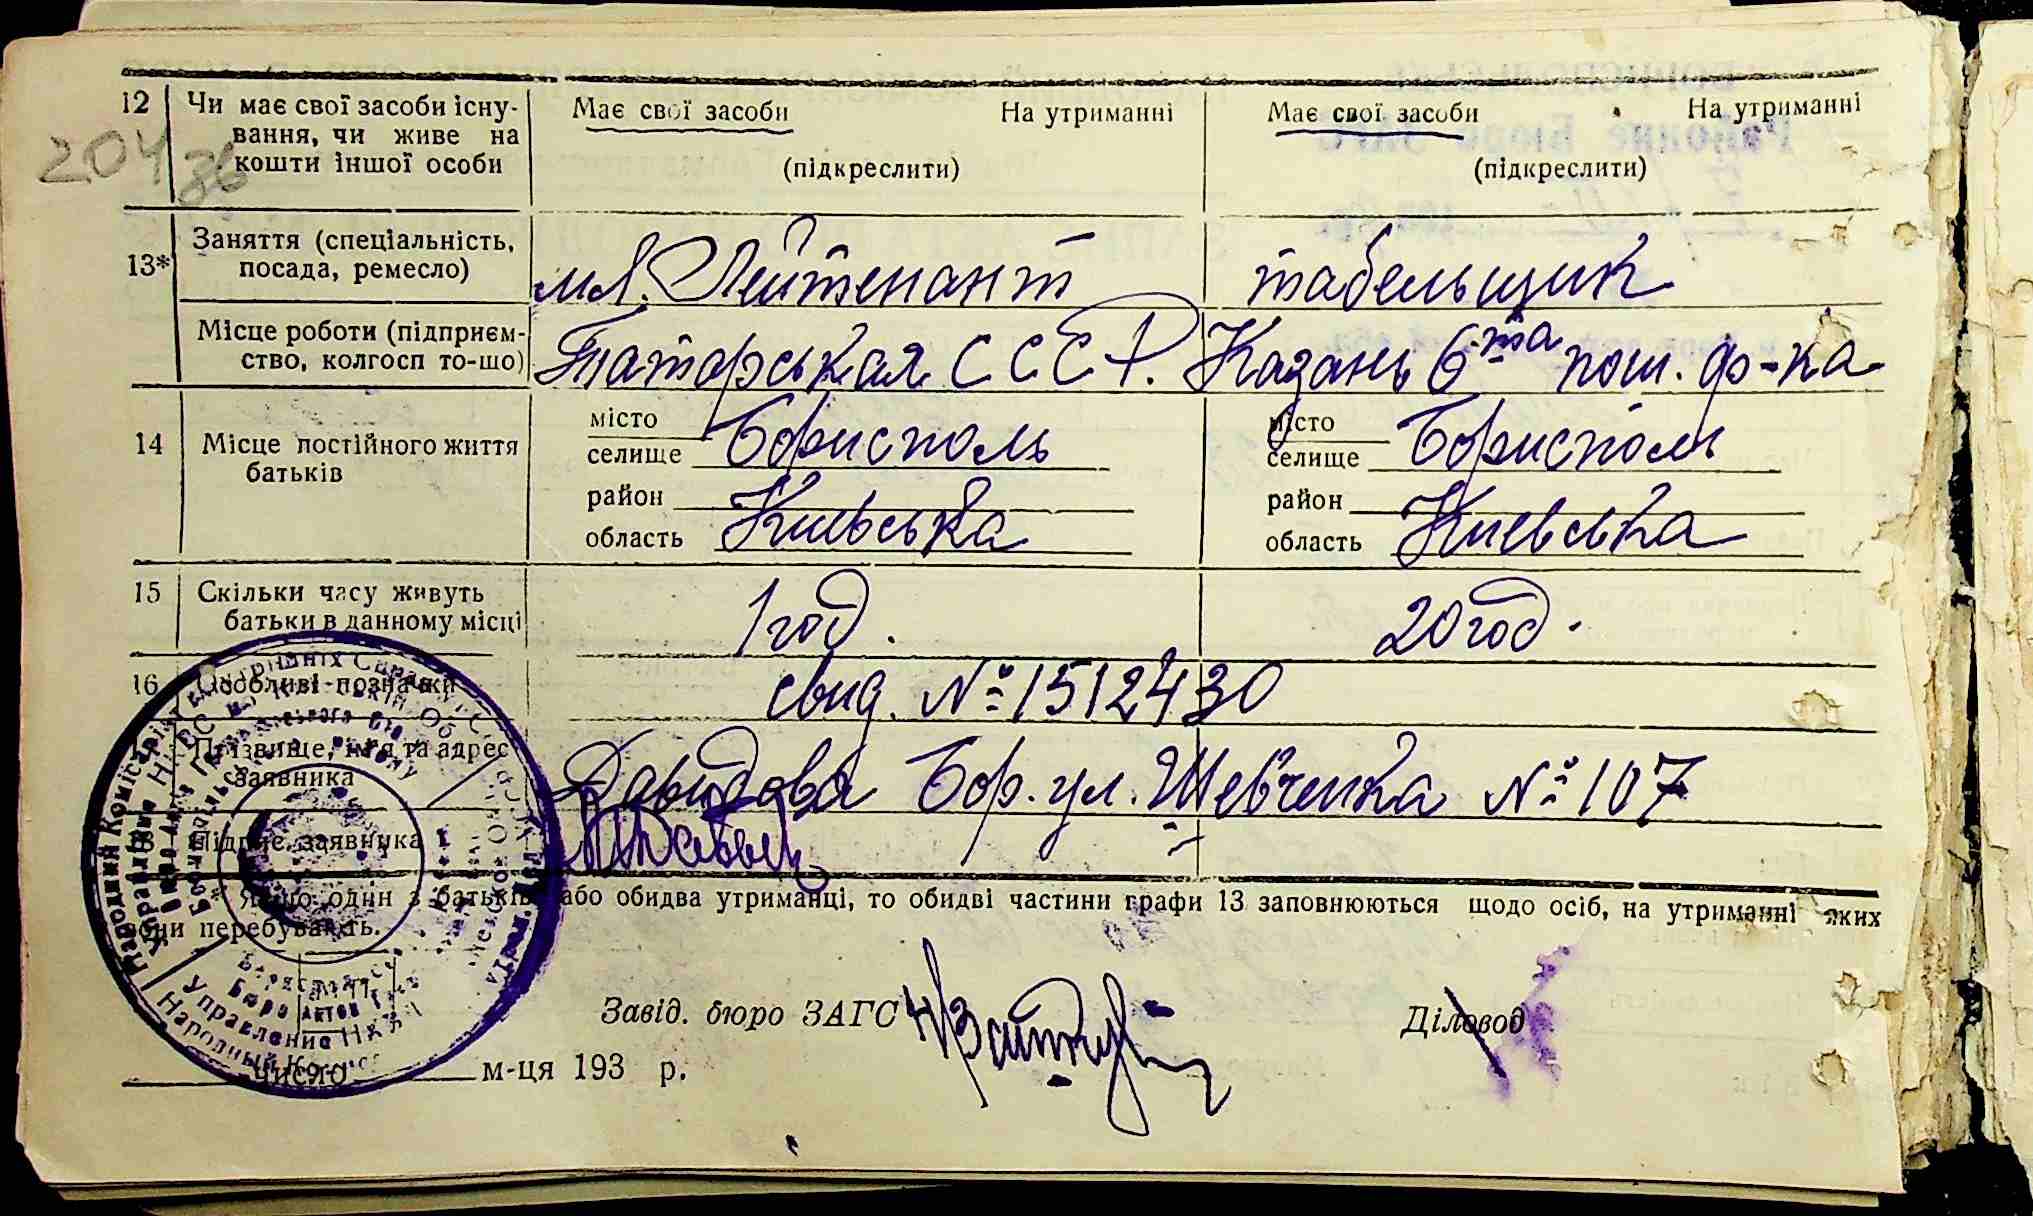 12 Чи має свої засоби існу- Має свої засоби На утриманні Має свої засоби На утриманні
вання, чи живе на
204 36 кошти іншої особи (підкреслити) (підкреслити)
13* Заняття (спеціальність, посада, ремесло) мл. Лейтенант табельщик
Місце роботи (підприєм-
ство, колгосп то-що) Татарская С С С Р. Казань 6та пош. ф-ка
14 Місце постійного життя
батьків
місто
селище Борисполь
район
область Киевська
місто
селище Борисполь
район
область Киевська
15 Скільки часу живуть
батьки в данному місці 1 год. 20 год.
16 Особливі позначки свид. № 1512430
Прізвище, ім'я та адрес
заявника Давидова Бор. ул. Шевченка № 107
Підпис заявника
Якщо один з батьків або обидва утриманці, то обидві частини графи 13 заповнюються щодо осіб, на утриманні яких
вони перебувають.
Завід. бюро ЗАГС Діловод
число м-ця 193 р.
Народний Комісаріат
Управління
Бюро актов
Управление НКВД
Народный